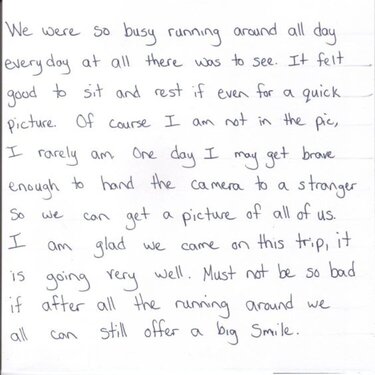 We were so busy running around all day
everyday at all there was to see. It felt
good to sit and rest if even for a quick
picture. Of course I am not in the pic,
I rarely am. One day I may get brave
enough to hand the camera to a stranger
so we can get a picture of all of us.
I am glad we came on this trip, it
is going very well. Must not be so bad
if after all the running around we
all can still offer a big smile.